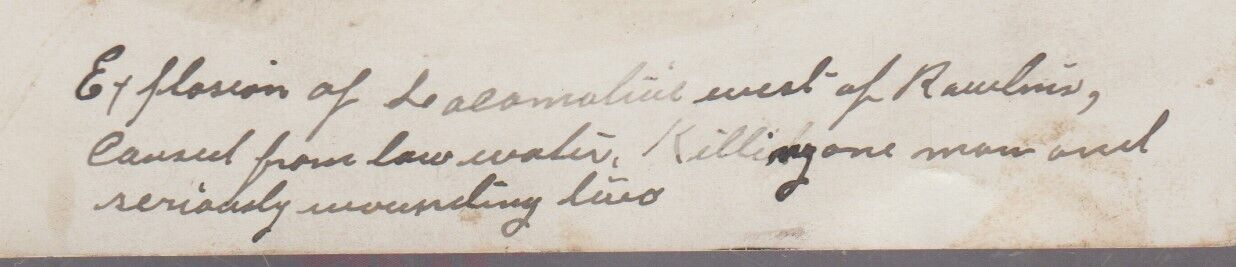 Explosion of Locomotive west of Rawlins,
Caused from low water, Killing one man and
seriously wounding two